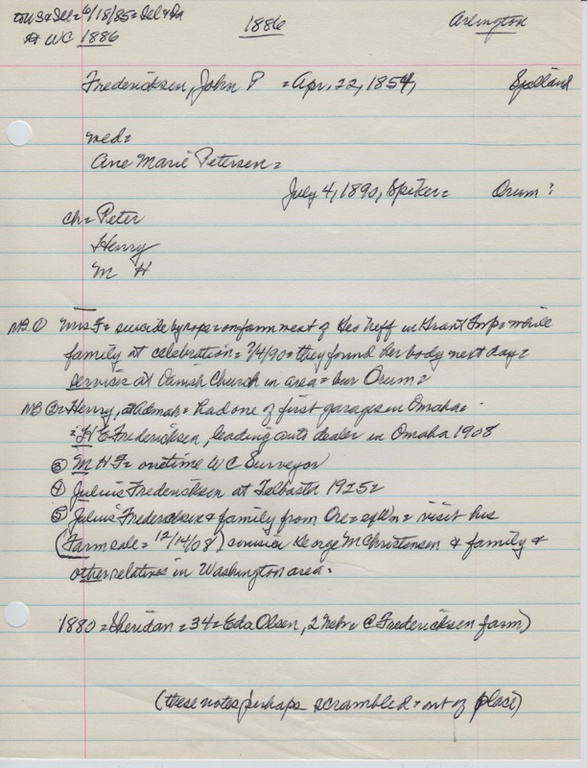 to US & Sel = 6/18/85 = Sel & Da
WC 1886
1886
Arlington
Fredericksen, John P = Apr. 22, 1854,
wed =
Ane Marie Petersen =
July 4, 1890, Spiker = Orum?
ch = Peter
Henry
M H
NB ① Mrs F = suicide by rope = on farm west of Geo Neff in Grant Twp = while
family at celebration = 7/4/90 = they found her body next day =
services at Danish Church in area = bur Orum =
NB ② = Henry, at Admah = had one of first garages in Omaha =
= H E Fredericksen, leading auto dealer in Omaha 1908
③ M H F = onetime WC Surveyor
④ Julius Fredericksen at Telbasta 1925 =
⑤ Julius Fredericksen & family from Ore = & Wn = visit his
(Farm sale = 12/14/08) cousin George M Christensen & family &
other relatives in Washington area.
1880 = Sheridan = 34 = Eda Olsen, 2 Nebr @ Fredericksen farm)
(these notes perhaps scrambled & out of place)